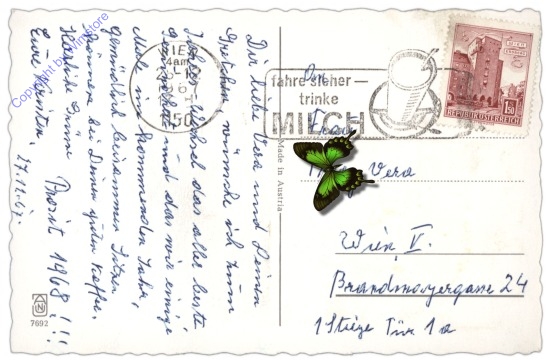 Dir liebe Vera und Deinen
Gretchen wünsche ich zum
Jahreswechsel das aller beste
Gesundheit und das wir einige
Male im kommenden Jahr,
gemütlich beisammen sitzen
können bei Deinen guten Kaffee.
Herzliche Grüsse Prosit 1968!!!
Eure
27.12.67.
WIEN
150
fahre sicher —
trinke
MILCH
WIEN
1.50
REPUBLIK ÖSTERREICH
Made in Austria
Vera
Wien, V.
Brandmayergasse 24
1 Stiege Tür 1a
7692
Copyright by wimstore